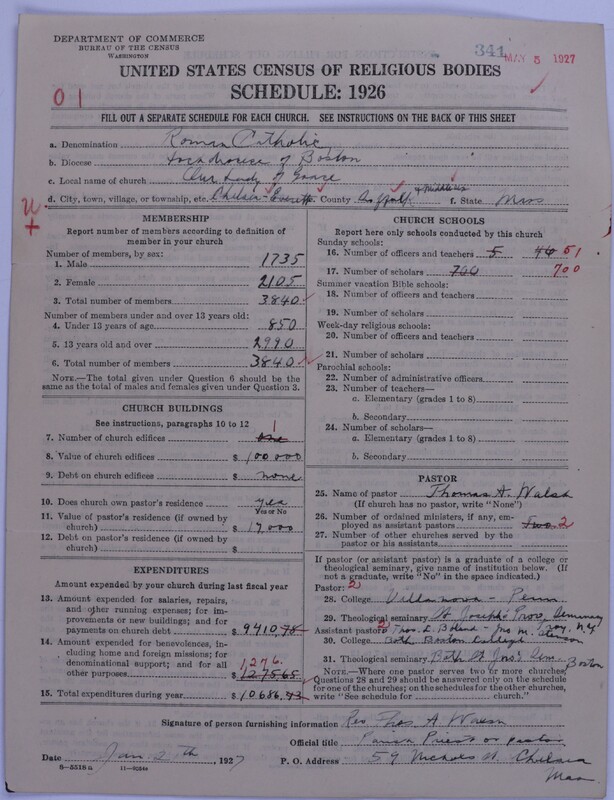 DEPARTMENT OF COMMERCE
BUREAU OF THE CENSUS
WASHINGTON
341 MAY 5 1927
UNITED STATES CENSUS OF RELIGIOUS BODIES
SCHEDULE: 1926
0 1
FILL OUT A SEPARATE SCHEDULE FOR EACH CHURCH. SEE INSTRUCTIONS ON THE BACK OF THIS SHEET
a. Denomination Roman Catholic
b. Diocese Archdiocese of Boston
c. Local name of church Our Lady of Grace
d. City, town, village, or township, etc. Chelsea-Everett County Suffolk + Middlesex f. State Mass
MEMBERSHIP
Report number of members according to definition of member in your church
Number of members, by sex:
1. Male 1735
2. Female 2105
3. Total number of members 3840
Number of members under and over 13 years old:
4. Under 13 years of age 850
5. 13 years old and over 2990
6. Total number of members 3840
NOTE.—The total given under Question 6 should be the same as the total of males and females given under Question 3.
CHURCH BUILDINGS
See instructions, paragraphs 10 to 12
7. Number of church edifices one 1
8. Value of church edifices $ 100000
9. Debt on church edifices $ none
10. Does church own pastor's residence yes
Yes or No
11. Value of pastor's residence (if owned by church) $ 19000
12. Debt on pastor's residence (if owned by church) $
EXPENDITURES
Amount expended by your church during last fiscal year
13. Amount expended for salaries, repairs, and other running expenses; for improvements or new buildings; and for payments on church debt $ 9410.78
14. Amount expended for benevolences, including home and foreign missions; for denominational support; and for all other purposes 1276. $ 1275.65
15. Total expenditures during year $ 10686.43
CHURCH SCHOOLS
Report here only schools conducted by this church
Sunday schools:
16. Number of officers and teachers 5 46 51
17. Number of scholars 700 700
Summer vacation Bible schools:
18. Number of officers and teachers
19. Number of scholars
Week-day religious schools:
20. Number of officers and teachers
21. Number of scholars
Parochial schools:
22. Number of administrative officers
23. Number of teachers—
a. Elementary (grades 1 to 8)
b. Secondary
24. Number of scholars—
a. Elementary (grades 1 to 8)
b. Secondary
PASTOR
25. Name of pastor Thomas A. Walsh
(If church has no pastor, write "None")
26. Number of ordained ministers, if any, employed as assistant pastors Two 2
27. Number of other churches served by the pastor or his assistants
If pastor (or assistant pastor) is a graduate of a college or theological seminary, give name of institution below. (If not a graduate, write "No" in the space indicated.)
Pastor: 2
28. College Villanova - Penn
29. Theological seminary St Josephs Prov. Seminary Troy, N.Y.
Assistant pastor: 2
30. College Both Boston College
31. Theological seminary Both St Jno's Sem. Boston
NOTE.—Where one pastor serves two or more churches, Questions 28 and 29 should be answered only on the schedule for one of the churches; on the schedules for the other churches, write "See schedule for church."
Signature of person furnishing information Rev Thos A Walsh
Official title Parish Priest or pastor
Date Jan 2 th, 1927 P. O. Address 59 Nichols St. Chelsea
Mass
8—5518a 11—9584a